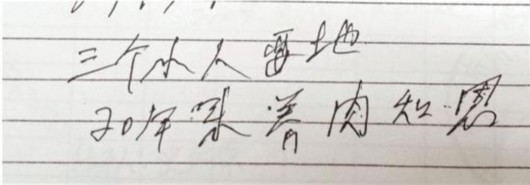 三个小人要地
20年来养肉知恩